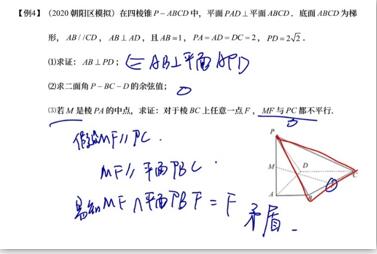 【例4】（2020 朝阳区模拟）在四棱锥 P－ABCD 中，平面 PAD⊥平面 ABCD．底面 ABCD 为梯
形，AB//CD，AB⊥AD，且 AB=1，PA=AD=DC=2，PD=2√2．
(1)求证：AB⊥PD； ⇐ AB⊥平面APD
(2)求二面角 P－BC－D 的余弦值；
(3)若 M 是棱 PA 的中点，求证：对于棱 BC 上任意一点 F，MF 与 PC 都不平行．
假设MF∥PC．
MF∥平面PBC
易知MF∩平面PBF = F
矛盾．
P
M
D
C
A
B